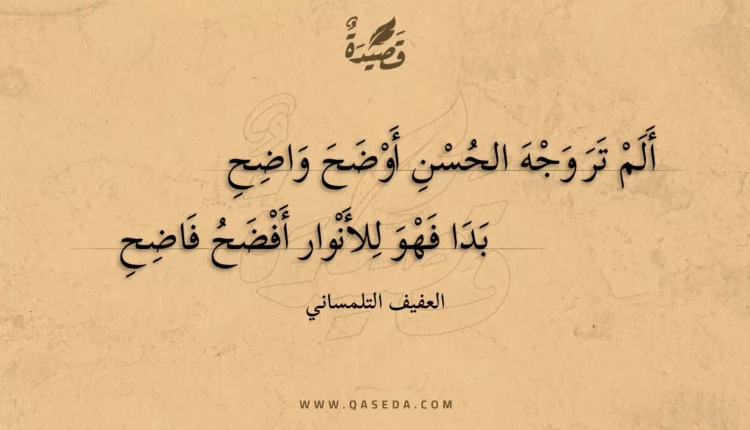 قَصِيْدَةٌ
أَلَمْ تَرَ وَجْهَ الحُسْنِ أَوْضَحَ وَاضِحِ
بَدَا فَهْوَ لِلأَنْوار أَفْضَحُ فَاضِحِ
العفيف التلمساني
WWW.QASEDA.COM